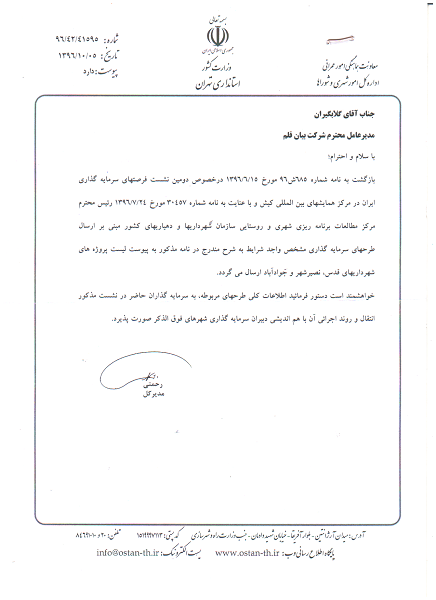 بسمه تعالی
جمهوری اسلامی ایران
وزارت کشور
استانداری تهران
شماره: ۹۶/۴۲/۴۱۵۹۵
تاریخ: ۱۳۹۶/۱۰/۰۵
پیوست: دارد
معاونت هماهنگی امور عمرانی
اداره کل امور شهری و شوراها
جناب آقای گلابگیران
مدیرعامل محترم شرکت بیان قلم
با سلام و احترام؛
بازگشت به نامه شماره ۶۸۵ش۹۶ مورخ ۱۳۹۶/۶/۱۵ درخصوص دومین نشست فرصتهای سرمایه گذاری
ایران در مرکز همایشهای بین المللی کیش و با عنایت به نامه شماره ۳۰۴۵۷ مورخ ۱۳۹۶/۷/۲۴ رئیس محترم
مرکز مطالعات برنامه ریزی شهری و روستایی سازمان شهرداریها و دهیاریهای کشور مبنی بر ارسال
طرحهای سرمایه گذاری مشخص واجد شرایط به شرح مندرج در نامه مذکور به پیوست لیست پروژه های
شهرداریهای قدس، نصیرشهر و جوادآباد ارسال می گردد.
خواهشمند است دستور فرمائید اطلاعات کلی طرحهای مربوطه، به سرمایه گذاران حاضر در نشست مذکور
انتقال و روند اجرائی آن با هم اندیشی دبیران سرمایه گذاری شهرهای فوق الذکر صورت پذیرد.
رحمتی
مدیرکل
آدرس: میدان آرژانتین - بلوار آفریقا - خیابان شهید دادمان - جنب وزارت راه و شهرسازی کد پستی: تلفن:
پایگاه اطلاع رسانی وب: www.ostan-th.ir پست الکترونیک: info@ostan-th.ir